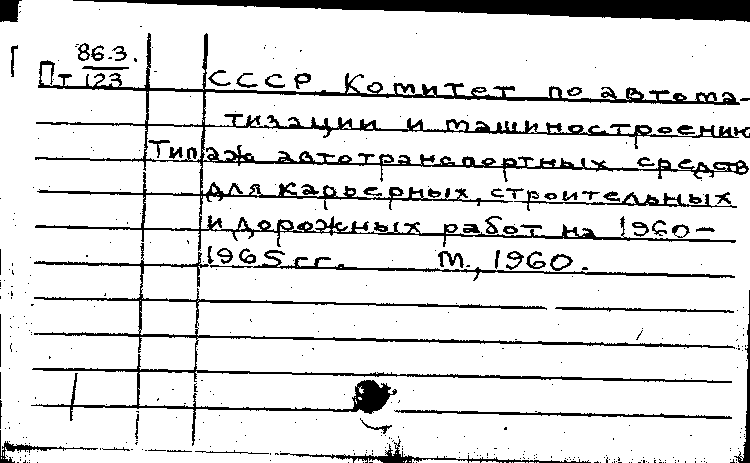 86.3.
Пт 123
СССР. Комитет по автома-
тизации и машиностроению
Типаж автотранспортных средств
для карьерных, строительных
и дорожных работ на 1960-
1965 гг. М., 1960.